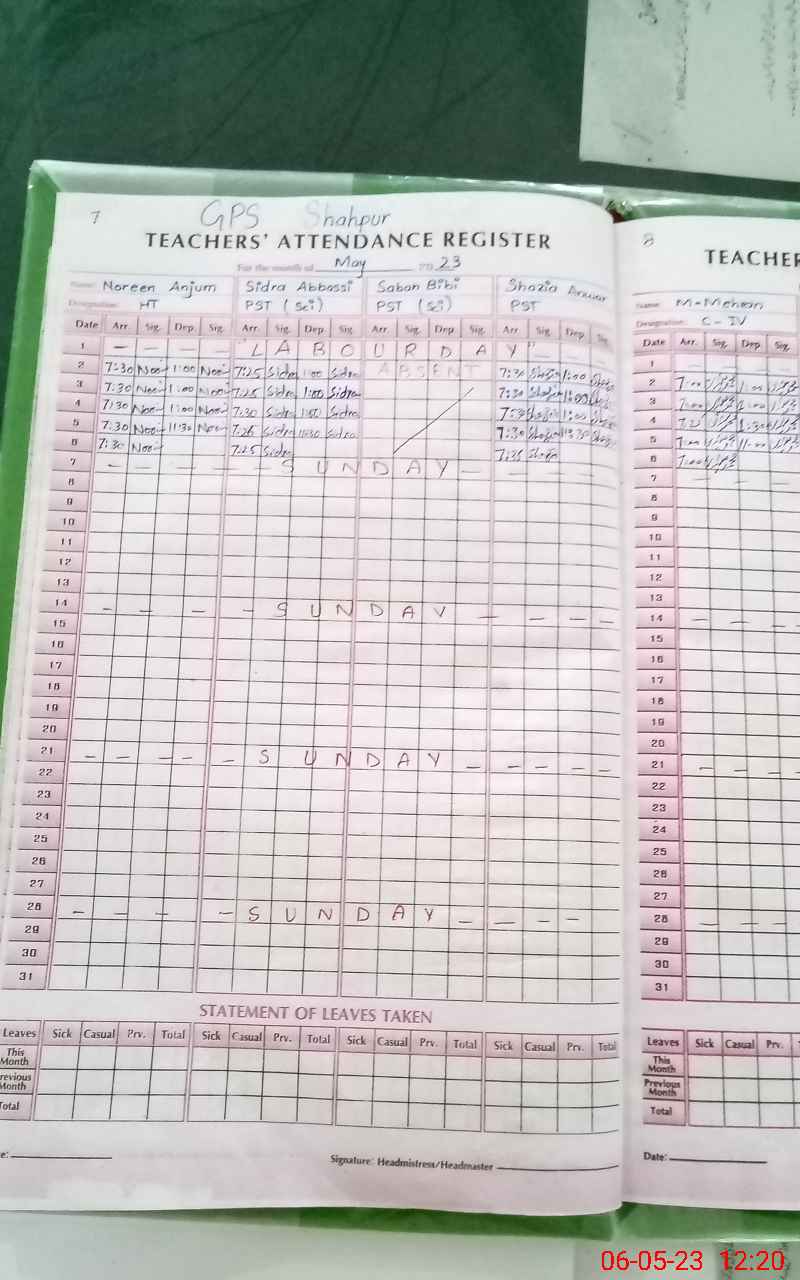 7 GPS Shahpur
TEACHERS' ATTENDANCE REGISTER
For the month of May 2023
Name: Noreen Anjum Sidra Abbassi Saban Bibi Shazia Anwar
Designation: HT PST (Sci) PST (Sci) PST
Date Arr. Sig. Dep. Sig. Arr. Sig. Dep. Sig. Arr. Sig. Dep. Sig. Arr. Sig. Dep. Sig.
1 — — — — "L A B O U R D A Y" — —
2 7:30 Noo 1:00 Noo 7:25 Sidra 1:00 Sidra A B S E N T 7:30 1:00
3 7:30 Noo 1:00 Noo 7:25 Sidra 1:00 Sidra 7:30 1:00
4 7:30 Noo 1:00 Noo 7:30 Sidra 1:00 Sidra 7:30 1:00
5 7:30 Noo 11:30 Noo 7:26 Sidra 11:30 Sidra 7:30 11:30
6 7:30 Noo 7:25 Sidra 7:25
7 — — — — S U N D A Y —
8
9
10
11
12
13
14 — — — — S U N D A Y — — — — —
15
16
17
18
19
20
21 — — — — — S U N D A Y — — — — —
22
23
24
25
26
27
28 — — — — S U N D A Y — — — —
29
30
31
STATEMENT OF LEAVES TAKEN
Leaves Sick Casual Prv. Total Sick Casual Prv. Total Sick Casual Prv. Total Sick Casual Prv. Total
This Month
Previous Month
Total
Signature: Headmistress/Headmaster
8
TEACHER
Name: M-Mehran
Designation: C-IV
Date Arr. Sig. Dep. Sig.
1
2 7:00 1:00
3 7:00 1:00
4 1:30
5 7:00 11:00
6 7:00
7 — —
8
9
10
11
12
13
14 — — — —
15
16
17
18
19
20
21 — — — —
22
23
24
25
26
27
28 — — — —
29
30
31
Leaves Sick Casual Prv.
This Month
Previous Month
Total
Date:
06-05-23 12:20